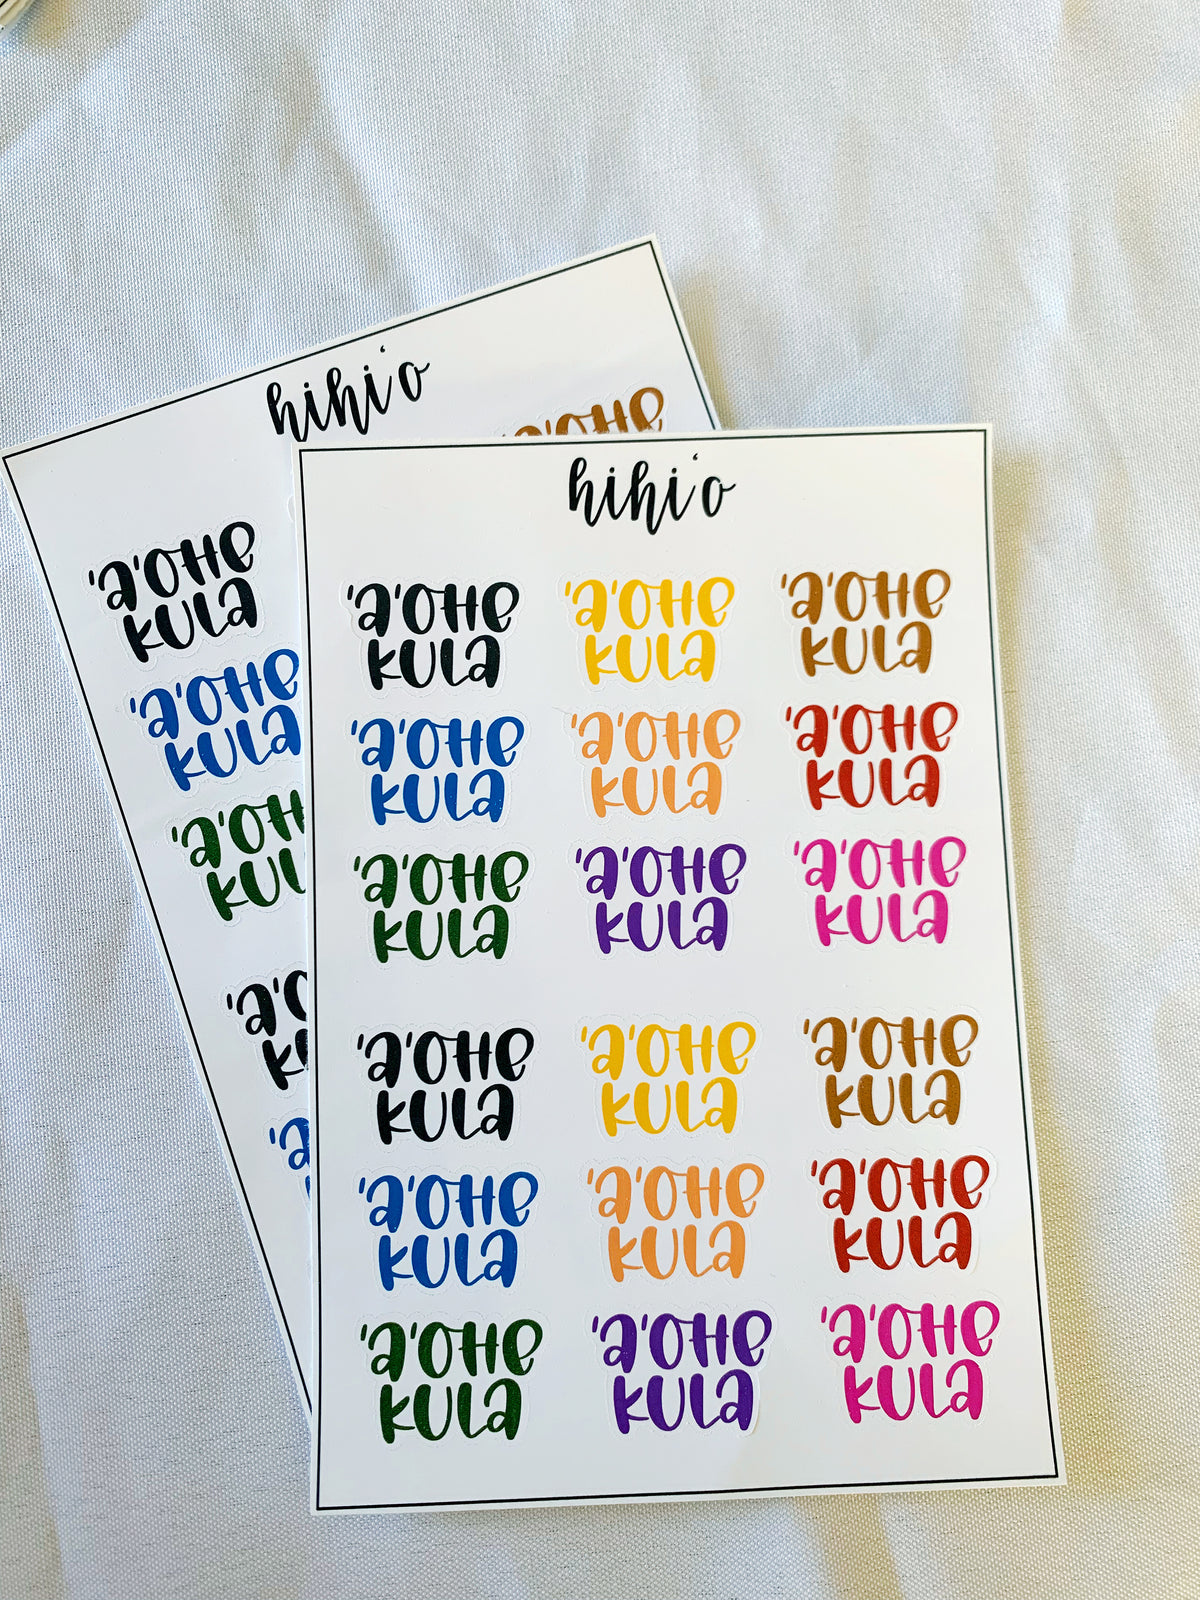 hihi'o
'A'OHE
'A'OHE
KULA
'A'OHE
KULA
hihi'o
'A'OHE 'A'OHE 'A'OHE
KULA KULA KULA
'A'OHE 'A'OHE 'A'OHE
KULA KULA KULA
'A'OHE 'A'OHE 'A'OHE
KULA KULA KULA
'A'OHE 'A'OHE 'A'OHE
KULA KULA KULA
'A'OHE 'A'OHE 'A'OHE
KULA KULA KULA
'A'OHE 'A'OHE 'A'OHE
KULA KULA KULA